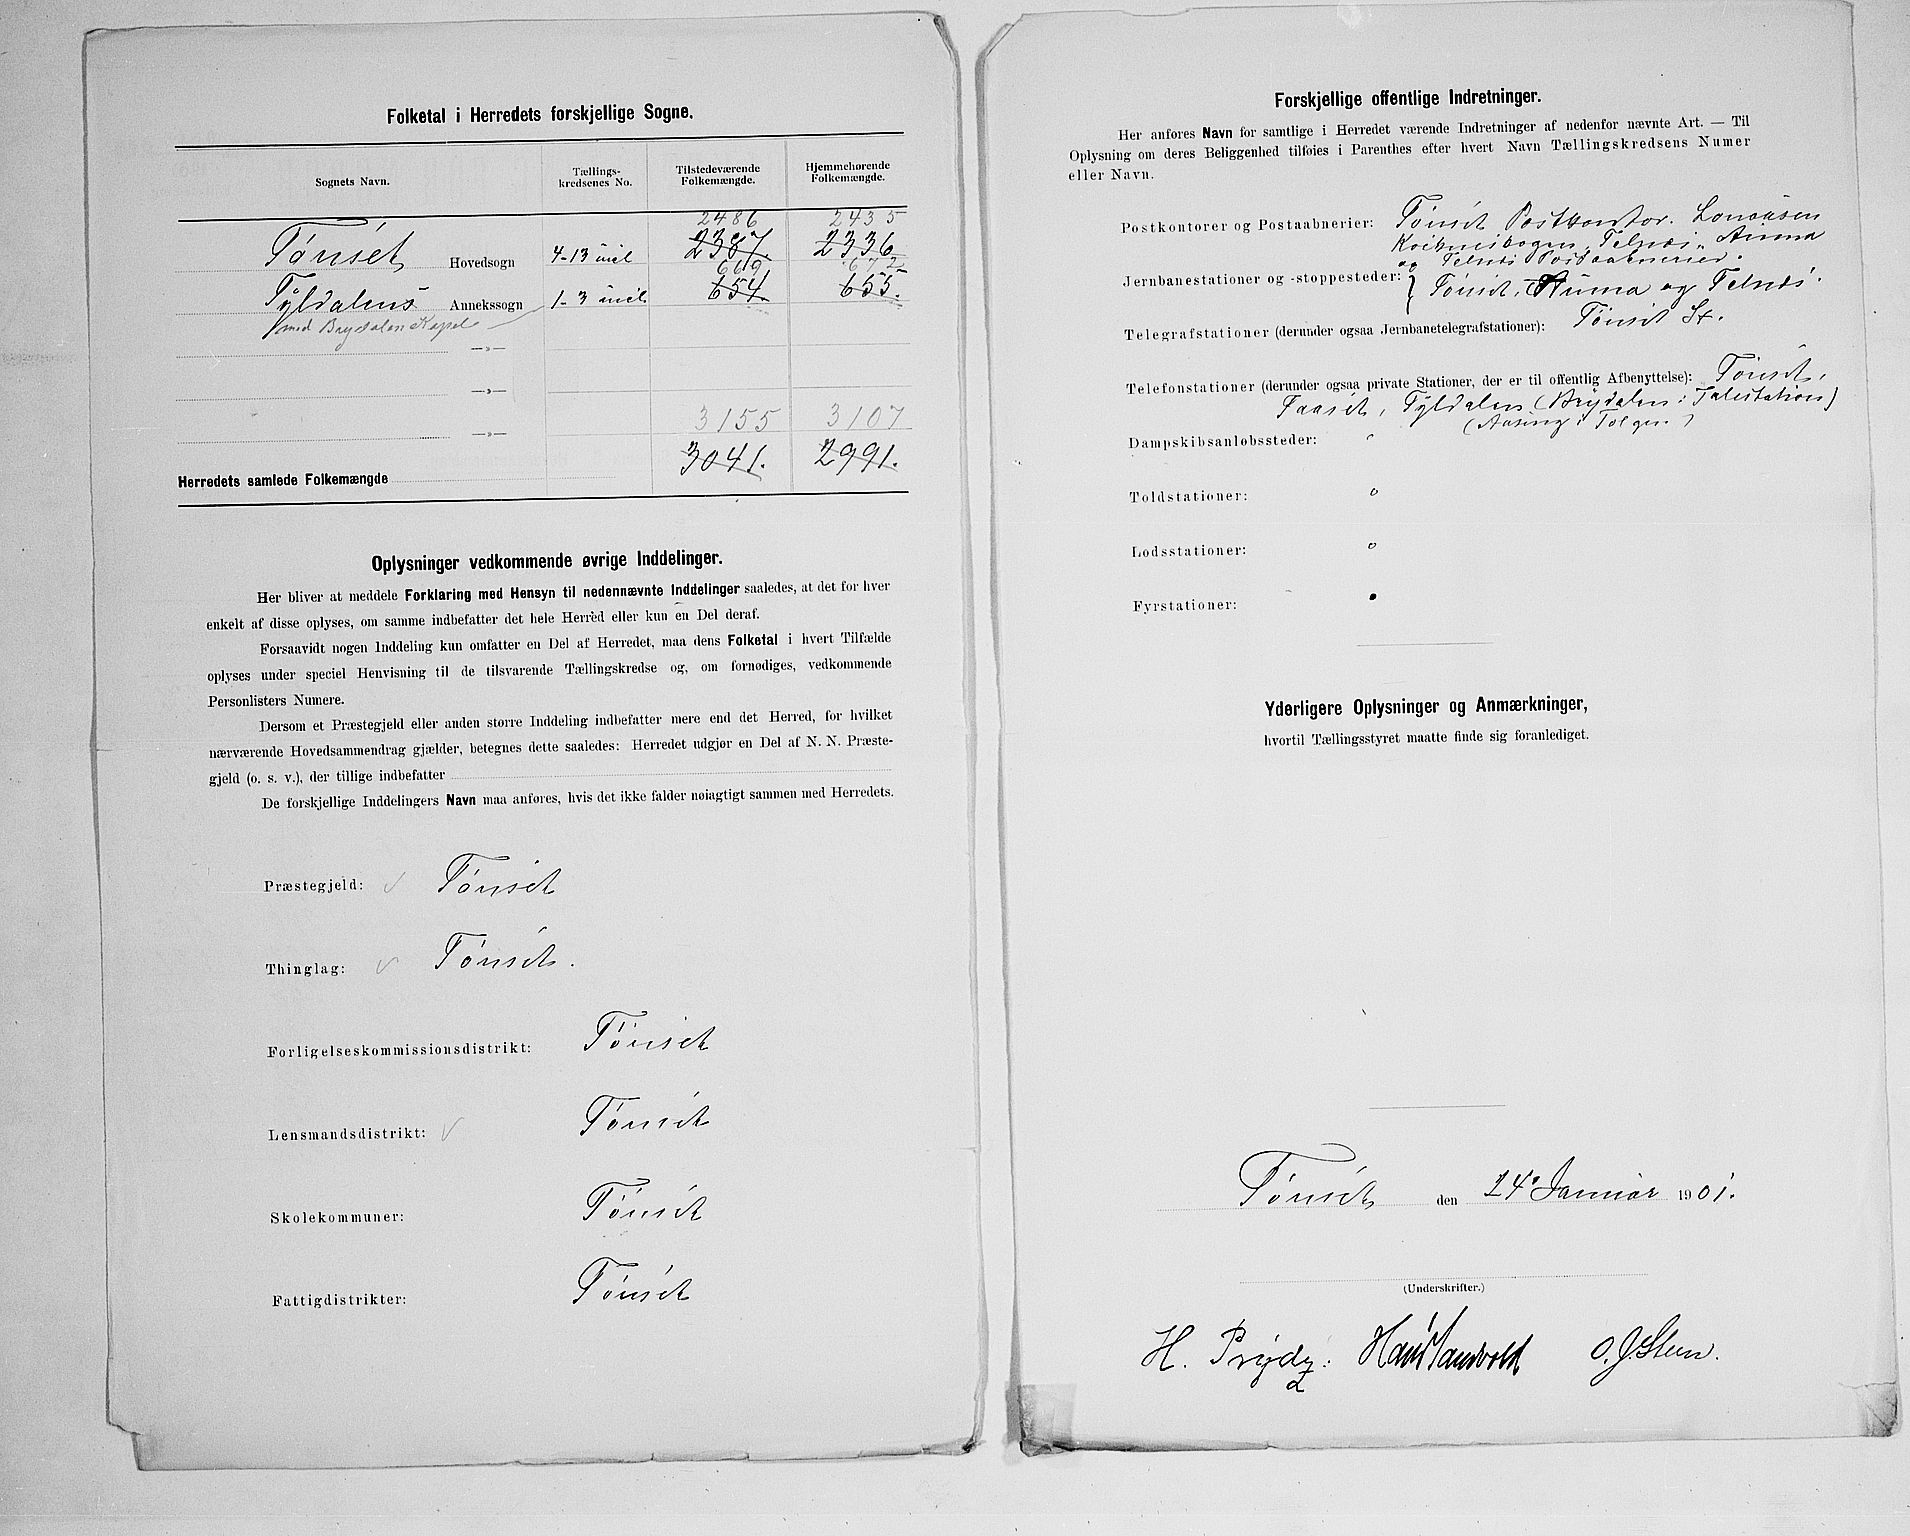 Folketal i Herredets forskjellige Sogne.
Sognets Navn.
Tællings-
kredsenes No.
Tilstedeværende
Folkemængde.
Hjemmehørende
Folkemængde.
2486 2435
Tønset Hovedsogn 4-13 incl 2387 2336
669 672
Tyldalens Annekssogn 1-3 incl. 654. 655.
med Brydalen Kapel
—»—
—»—
3155 3107
—»—
3041. 2991.
Herredets samlede Folkemængde
Oplysninger vedkommende øvrige Inddelinger.
Her bliver at meddele Forklaring med Hensyn til nedennævnte Inddelinger saaledes, at det for hver
enkelt af disse oplyses, om samme indbefatter det hele Herred eller kun en Del deraf.
Forsaavidt nogen Inddeling kun omfatter en Del af Herredet, maa dens Folketal i hvert Tilfælde
oplyses under speciel Henvisning til de tilsvarende Tællingskredse og, om fornødiges, vedkommende
Personlisters Numere.
Dersom et Præstegjeld eller anden større Inddeling indbefatter mere end det Herred, for hvilket
nærværende Hovedsammendrag gjælder, betegnes dette saaledes: Herredet udgjør en Del af N. N. Præste-
gjeld (o. s. v.), der tillige indbefatter
De forskjellige Inddelingers Navn maa anføres, hvis det ikke falder nøiagtigt sammen med Herredets.
Præstegjeld: Tønset
Thinglag: Tønset.
Forligelseskommissionsdistrikt: Tønset
Lensmandsdistrikt: Tønset
Skolekommuner: Tønset
Fattigdistrikter: Tønset
Forskjellige offentlige Indretninger.
Her anføres Navn for samtlige i Herredet værende Indretninger af nedenfor nævnte Art. — Til
Oplysning om deres Beliggenhed tilføies i Parenthes efter hvert Navn Tællingskredsens Numer
eller Navn.
Postkontorer og Postaabnerier: Tønset Postkontor. Lonaasen
Telnes, Auma
og Telnes Postaabnerier.
Jernbanestationer og -stoppesteder: Tønset, Auma og Telnes.
Telegrafstationer (derunder ogsaa Jernbanetelegrafstationer): Tønset St.
Telefonstationer (derunder ogsaa private Stationer, der er til offentlig Afbenyttelse): Tønset,
Faaset, Tyldalen (Brydalen: Talestation)
(Aasing i Tolgen)
Dampskibsanløbssteder:
Toldstationer: o
Lodsstationer: o
Fyrstationer:
Yderligere Oplysninger og Anmærkninger,
hvortil Tællingsstyret maatte finde sig foranlediget.
Tønset den 24. Januar 1901.
(Underskrifter.)
H. Prydz. Hans Sandvold O. J. Steen.